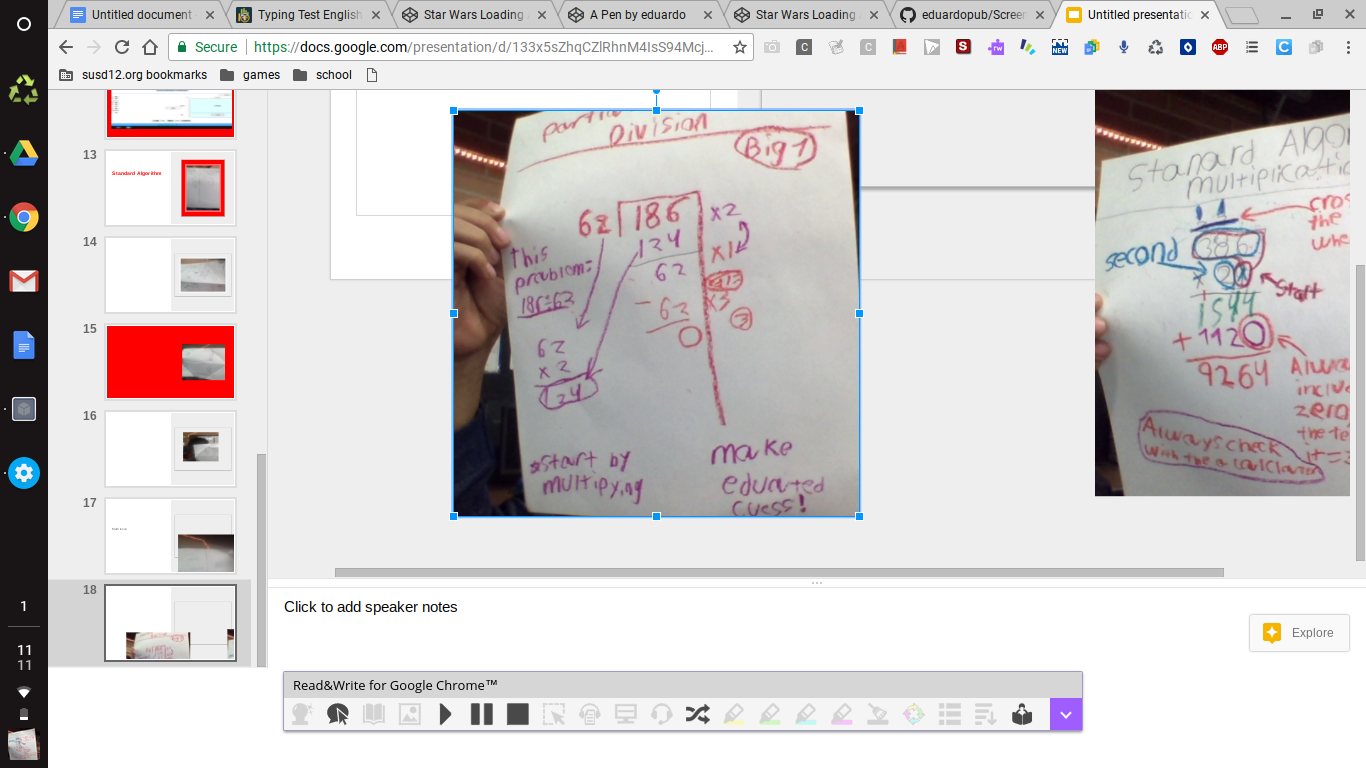 Untitled document
Typing Test English
Star Wars Loading
A Pen by eduardo
Star Wars Loading
eduardopub/Screen
Untitled presentatio
Secure
https://docs.google.com/presentation/d/133x5sZhqCZlRhnM4IsS94Mcj...
susd12.org bookmarks
games
school
13
Standard Algorithm
14
15
16
17
18
Division
Big 7
62 186 x2
124 x1
62
- 62 x3
0 3
this
problem=
186÷62
62
x 2
124
*Start by
multipying
make
eduated
Guess!
Stanard Algor
multiplicatio
cros
the
whe
second
386
Start
1544
+ 1120
9264
Alwa
inclu
zero
the te
it=
Always check
Click to add speaker notes
Explore
Read&Write for Google Chrome™
1
11
11